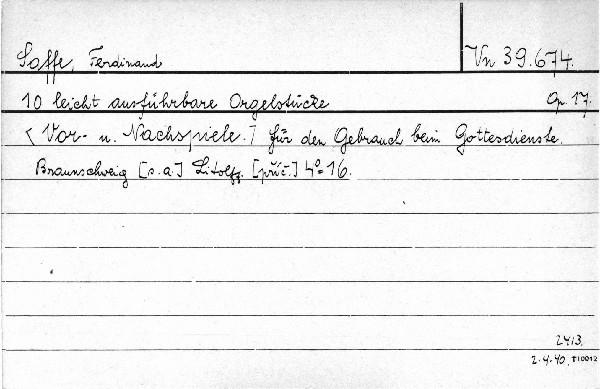 Saffe, Ferdinand Vn 39.674.
10 leicht ausführbare Orgelstücke Op. 17.
< Vor- u. Nachspiele.] für den Gebrauch beim Gottesdienste.
Braunschweig [s.a.] Litolff. [příč.] 4° 16.
2413.
2.4.40. T10012